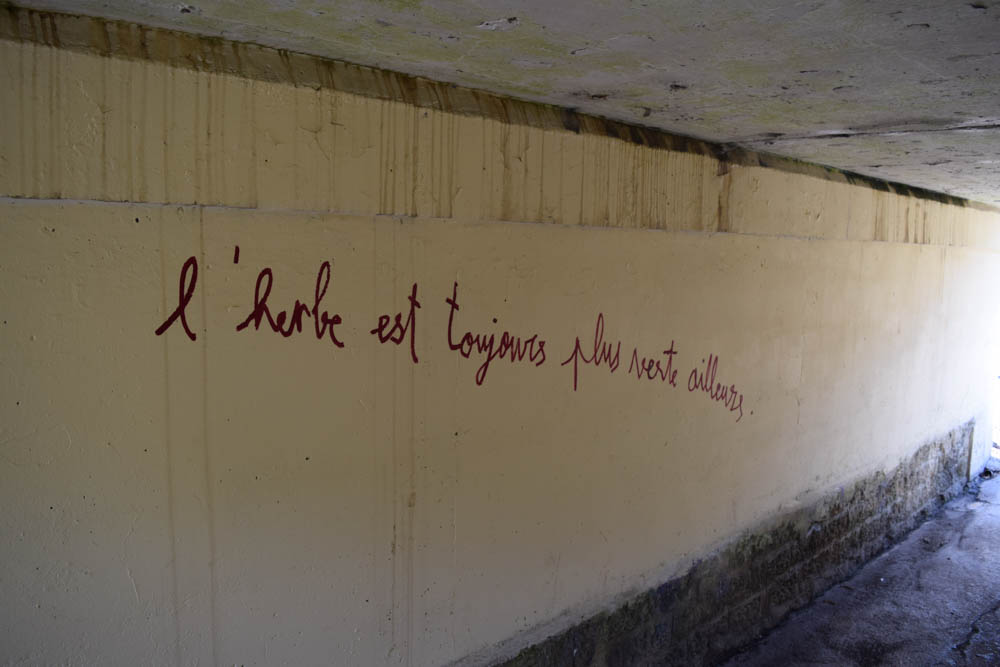 l'herbe est toujours plus verte ailleurs.